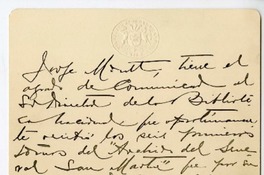 Jorge Montt, tiene el
agrado de comunicar al
Sr Director de la Bibliote
ca Nacional que oportunamen
te recibió los seis primeros
tomos del "Archivo del Gene
ral San Martin" que por su